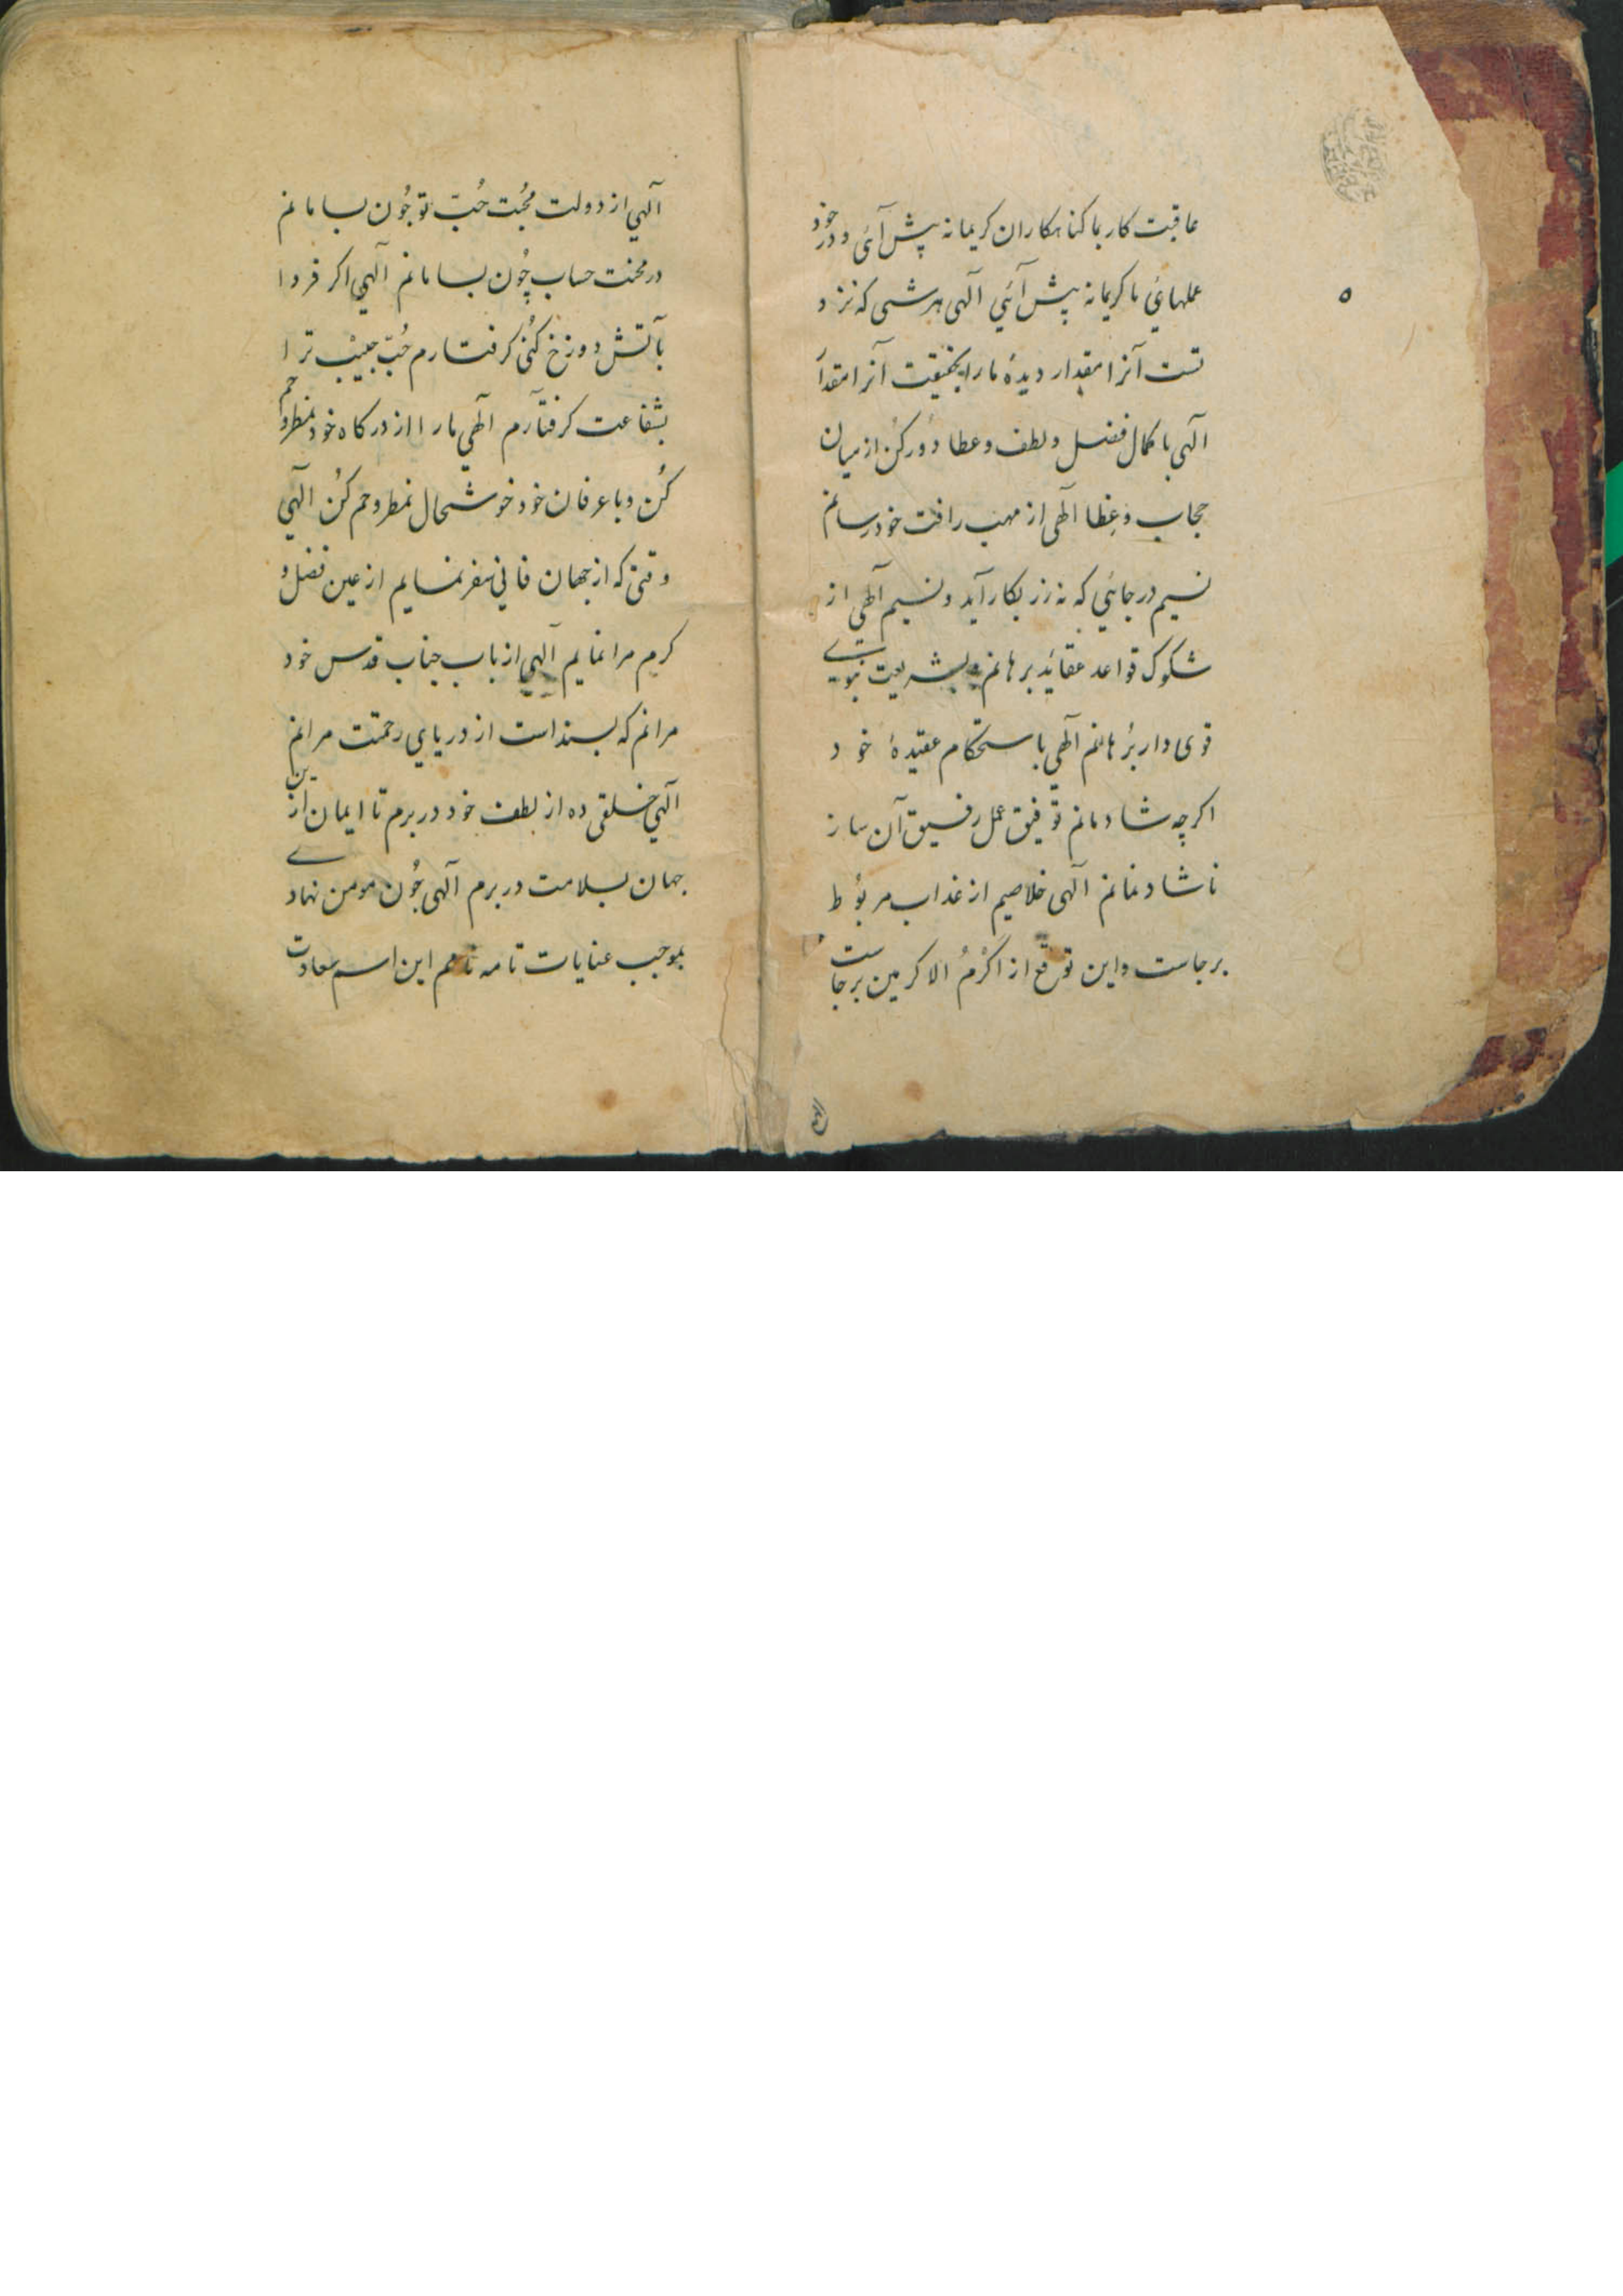 عاقبت کار با کناهکاران کریمانه پیش آئی و در خود
عملهائي ما کریمانه پیش آئي آلهی هرشی که نزد
تست آنرا مقدار دیدهٔ ما را بحقیقت آنرا مقدآ
آلهی با کمال فضل و لطف و عطا دُور کُن از میان
حجاب و غِطا آلهی از مهب رافت خود رسانم
نسیم در جائي که نه زر بکار آید و نسیم آلهی از
شکوک قواعد عقائد برهانم و بشریعت نبوی
قوی دار بُرهانم آلهی با ستحکام عقیدهٔ خود
اکرچه شادمانم توفیق عمل رفیق آن ساز
ناشاد نمانم آلهی خلاصیم از عذاب مربُوط
برجاست و این توقع از اکْرَمُ الاکرمین برجاست
۵
آلهي از دولت محُبت حُبّ تو چُون بسامانم
در محنت حساب چُون بسامانم آلهي اکر فردا
بآتش دوزخ کُنی کرفتارم حُبّ حبیْب ترا
بشفاعت کرفتآرم آلهي ما را از درکاه خود مطروحم
کُن و با عرفان خود خوشحال مطروحم کُن آلهي
وقتی که از جهان فاني سفر نمایم از عین فضل و
کرم مرا نمایم آلهي از باب جناب قدس خود
مرانم که بسنداست از دریاي رحمتت مرانم
آلهي خلقی ده از لطف خود در برم تا ایمان ازین
جهان بسلامت در برم آلهی چُون مومن نهادے
بموجب عنایات تامه نامم این اسم سعادت